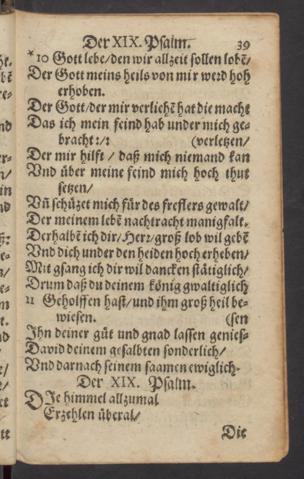 Der XIX. Psalm. 39
*10 Gott lebe/den wir allzeit sollen lobē/
Der Gott meins heils von mir werd hoh
erhoben.
Der Gott/der mir verlichē hat die macht
Das ich mein feind hab under mich ge-
bracht:/: (verletzen/
Der mir hilft / daß mich niemand kan
Vnd über meine feind mich hoch thut
setzen/
Vñ schützet mich für des freflers gewalt/
Der meinem lebē nachtracht manigfalt.
Derhalbē ich dir/Herr/groß lob wil gebē
Vnd dich under den heiden hoch erheben/
Mit gsang ich dir wil dancken stätiglich/
Drum daß du deinem könig gwaltiglich
11 Geholffen hast/und ihm groß heil be-
wiesen. (sen
Ihn deiner güt und gnad lassen genies-
David deinem gesalbten sonderlich/
Vnd darnach seinem saamen ewiglich.
Der XIX. Psalm.
DIe himmel allzumal
Erzehlen überal/
Die